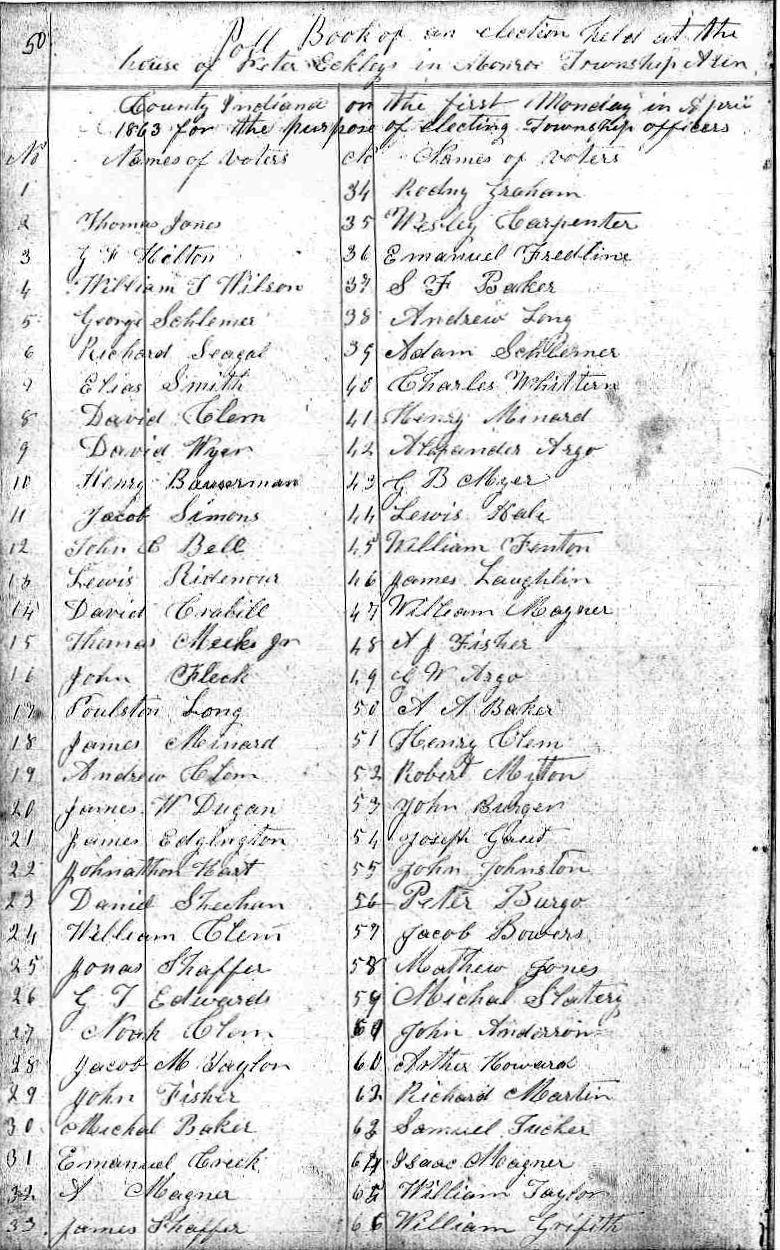 50
Poll Book of an election held at the
house of Peter Eckleys in Monroe Township Allen
County Indiana on the first Monday in April
1863 for the purpose of electing Township officers
No Names of voters
1
2 Thomas Jones
3 G F Hilton
4 William T Wilson
5 George Schlemer
6 Richard Seagal
7 Elias Smith
8 David Clem
9 David Wyer
10 Henry Bauserman
11 Jacob Simons
12 John C Bell
13 Lewis Ridenour
14 David Crabill
15 Thomas Meeks Jr
16 John Fleck
17 Poulston Long
18 James Minard
19 Andrew Clem
20 James W Dugan
21 James Edgington
22 Johnathon Hart
23 Daniel Sheehan
24 William Clem
25 Jonas Shaffer
26 G T Edwards
27 Noah Clem
28 Jacob M Taylor
29 John Fisher
30 Michal Baker
31 Emanuel Creek
32 A Magner
33 James Shaffer
No Names of voters
34 Rodny Graham
35 Wesley Carpenter
36 Emanuel Fredline
37 S F Baker
38 Andrew Long
39 Adam Schlemer
40 Charles Whittern
41 Henry Minard
42 Alexander Argo
43 G B Myer
44 Lewis Hale
45 William Fenton
46 James Laughlin
47 William Magner
48 A J Fisher
49 W Argo
50 A A Baker
51 Henry Clem
52 Robert Mitton
53 John Burger
54 Joseph
55 John Johnston
56 Peter Burgo
57 Jacob Bowers
58 Mathew Jones
59 Michal Slatery
60 John Anderson
60 Arther Howard
62 Richard Martin
62 Samuel Tucker
64 Isaac Magner
65 William Taylor
66 William Grifith